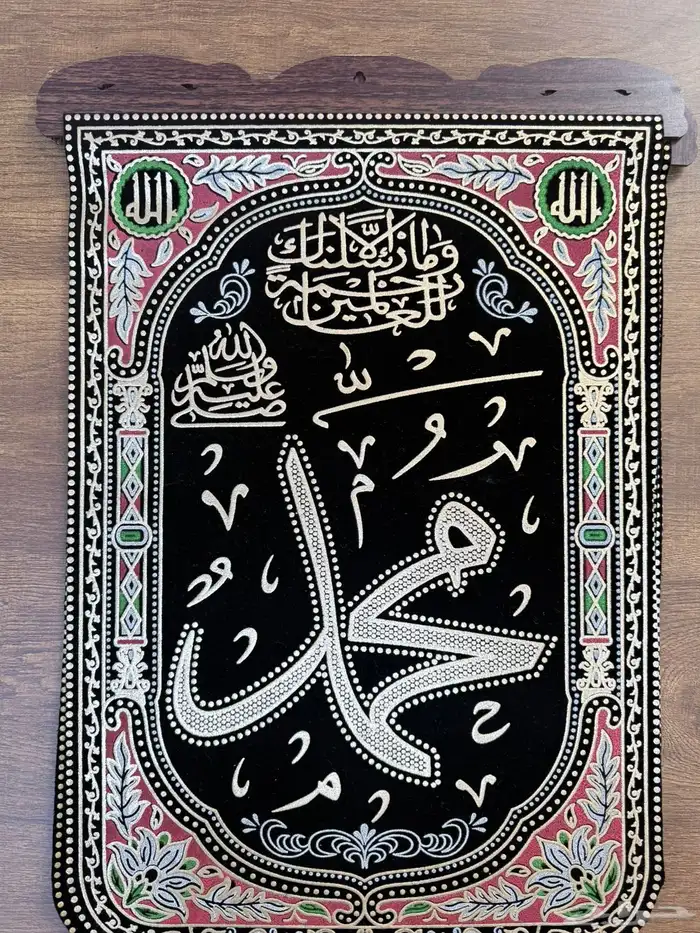 الله
الله
وما أرسلناك إلا
رحمة
للعالمين
صلى الله عليه وسلم
محمد